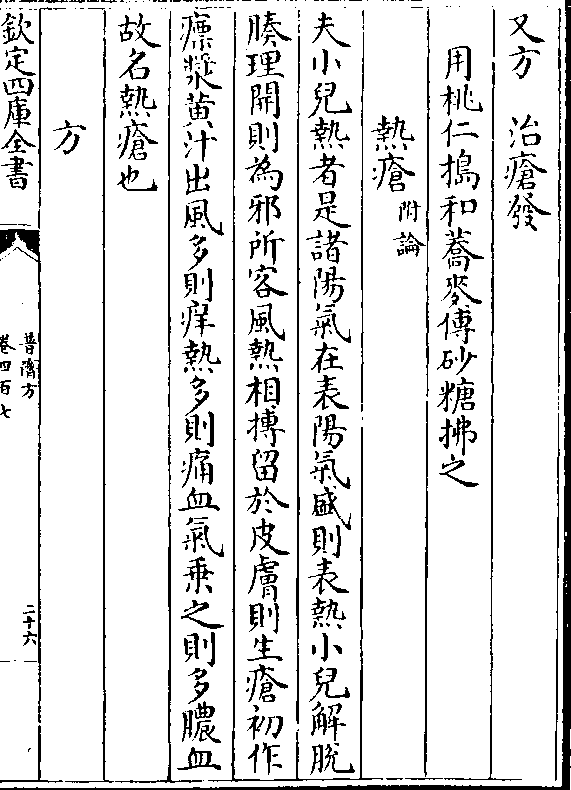 又方　治瘡發
用桃仁搗和蕎麥傅砂糖拂之
熱瘡附論
夫小兒熱者是諸陽氣在表陽氣盛則表熱小兒解脫
腠理開則為邪所客風熱相搏留於皮膚則生瘡初作
瘭漿黄汁出風多則痒熱多則痛血氣乗之則多膿血
故名熱瘡也
方
欽定四庫全書
普濟方
卷四百七
二十六